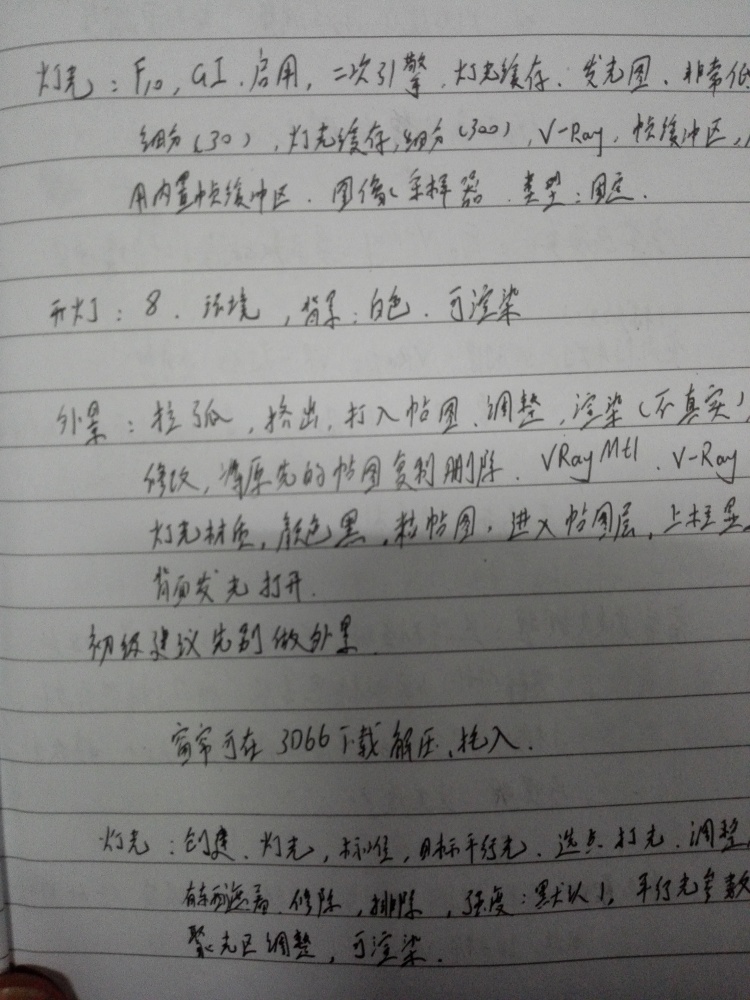 灯光：F10，GI、启用，二次引擎，灯光缓存、发光图、非常低
细分(30)，灯光缓存，细分(300)，V-Ray，帧缓冲区，
用内置帧缓冲区、图像采样器、类型：固定.
开灯：8、环境，背景：白色、可渲染
外景：拉弧，挤出，打入帖图、调整，渲染(不真实)，
修改，将原先的帖图复制删除、VRayMtl、V-Ray
灯光材质，颜色黑，粘帖图，进入帖图层，上柱显
背面发光打开.
初级建议先别做外景.
窗帘可在3D66下载解压，拖入.
灯光：创建、灯光，标准，目标平行光、选点打光、调整，
有东西遮着、修除，排除，强度：默认1，平行光参数
聚光区调整，可渲染.